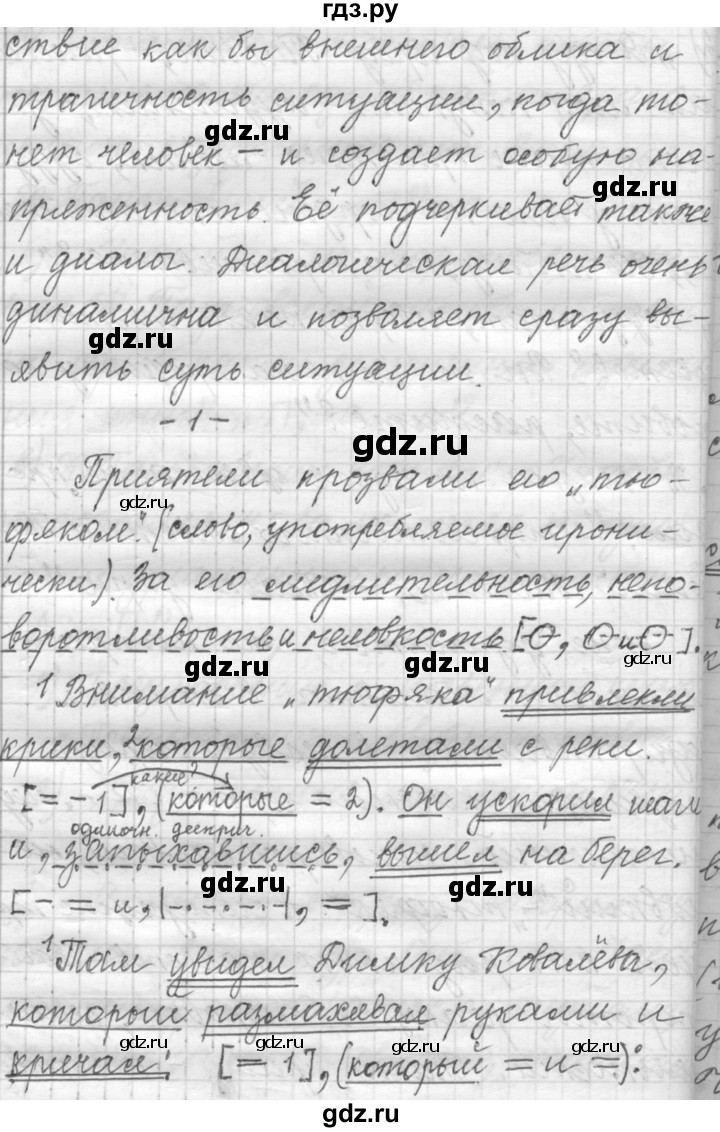 гдз.ру
ствие как бы внешнего облика и
трагичность ситуации, когда то-
gdz.ru
нет человек – и создает особую на-
gdz.ru
пряженность. Её подчеркивает также
и диалог. Диалогическая речь очень
динамична и позволяет сразу вы-
gdz.ru
явить суть ситуации.
- 1 -
gdz.ru
Приятели прозвали его „тю-
gdz.ru gdz.ru
фяком". (слово, употребляемое ирони-
чески). За его медлительность, непо-
gdz.ru
воротливость и неловкость [О, О и О].
gdz.ru gdz.ru
1 Внимание „тюфяка" привлекли
крики, 2 которые долетали с реки.
какие?
[= – 1], (которые = 2). Он ускорил шаги
одиночн. дееприч.
и, запыхавшись, вышел на берег.
gdz.ru gdz.ru
[– = и, |-.-.-.-|, =].
1 Там увидел Димку Ковалёва,
который размахивал руками и
gdz.ru gdz.ru gdz.ru gdz.ru
кричал: [= 1], (который = и =):
gdz.ru